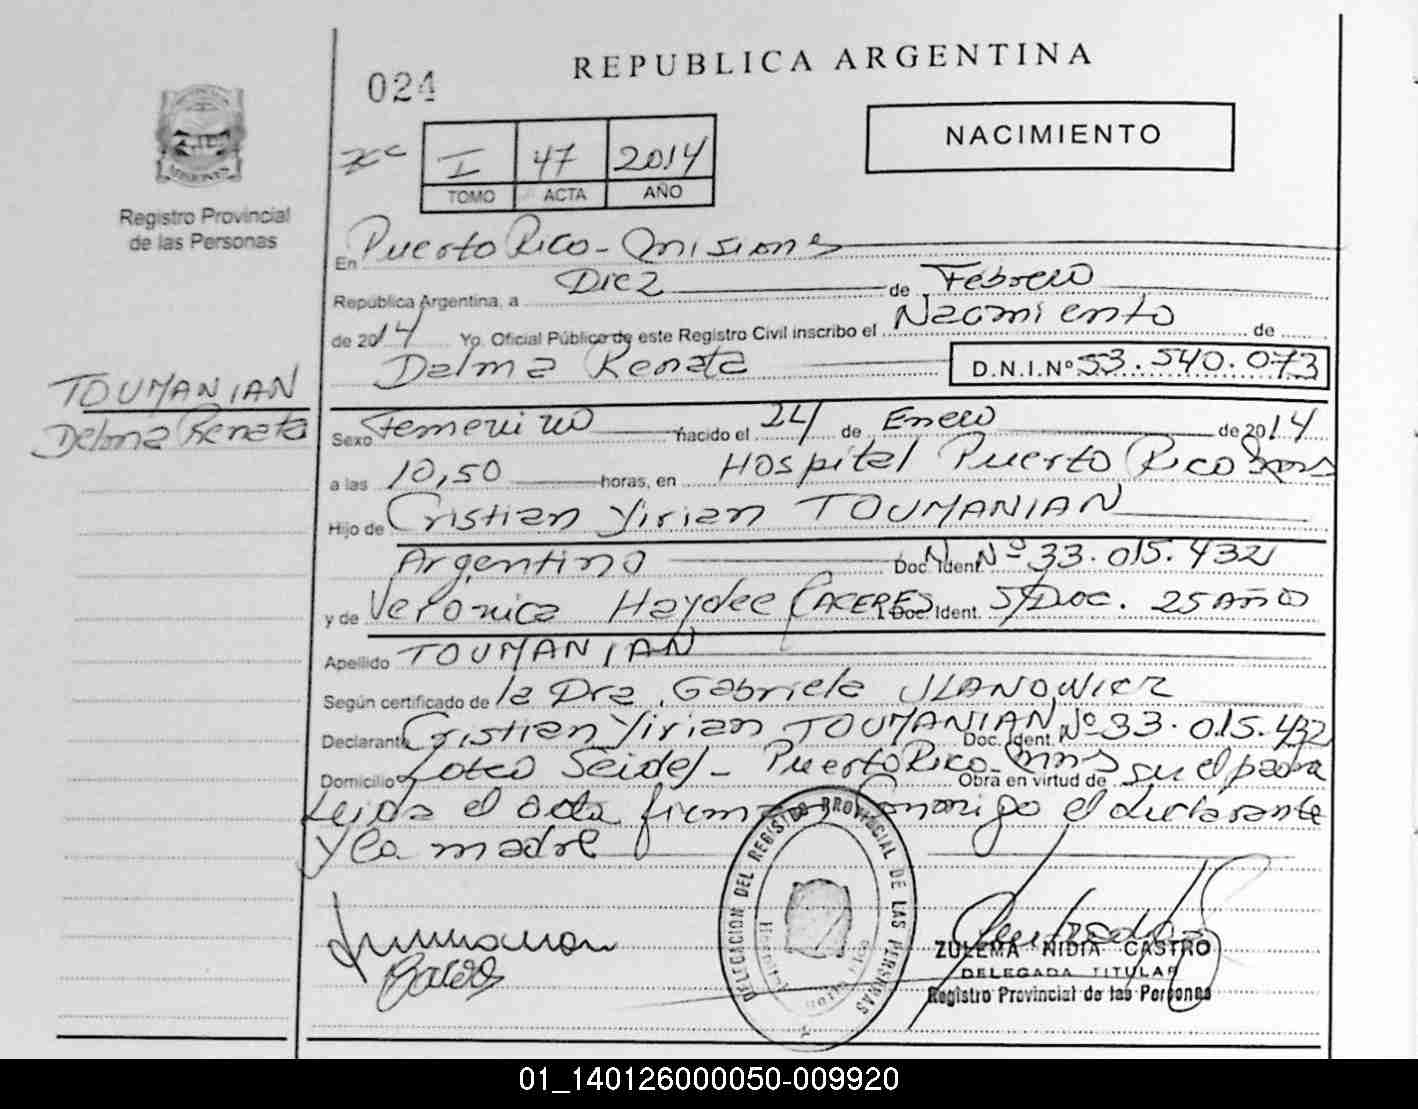 REPUBLICA ARGENTINA
024
NACIMIENTO
I 47 2014
TOMO ACTA AÑO
Registro Provincial
de las Personas
En Puerto Rico - Misiones
República Argentina, a Diez de Febrero
de 2014 Yo, Oficial Público de este Registro Civil inscribo el Nacimiento de
Dalma Renata D.N.I.Nº 53.540.073
TOUMANIAN
Dalma Renata
Sexo Femenino nacido el 24 de Enero de 2014
a las 10,50 horas, en Hospital Puerto Rico Mnes
Hijo de Cristian Yirian TOUMANIAN
Argentino Doc. Ident. Nº 33.015.432
y de Verónica Haydee CACERES Doc. Ident. S/Doc. 25 AÑOS
Apellido TOUMANIAN
Según certificado de la Dra. Gabriela
Declarante Cristian Yirian TOUMANIAN Doc. Ident. Nº 33.015.432
Domicilio Loteo Seidel - Puerto Rico - Mnes Obra en virtud de su el padre
Leida el acta firman Conmigo el declarante
y la madre
DELEGACION DEL REGISTRO PROVINCIAL DE LAS PERSONAS
ZULEMA NIDIA CASTRO
DELEGADA TITULAR
Registro Provincial de las Personas
01_140126000050-009920